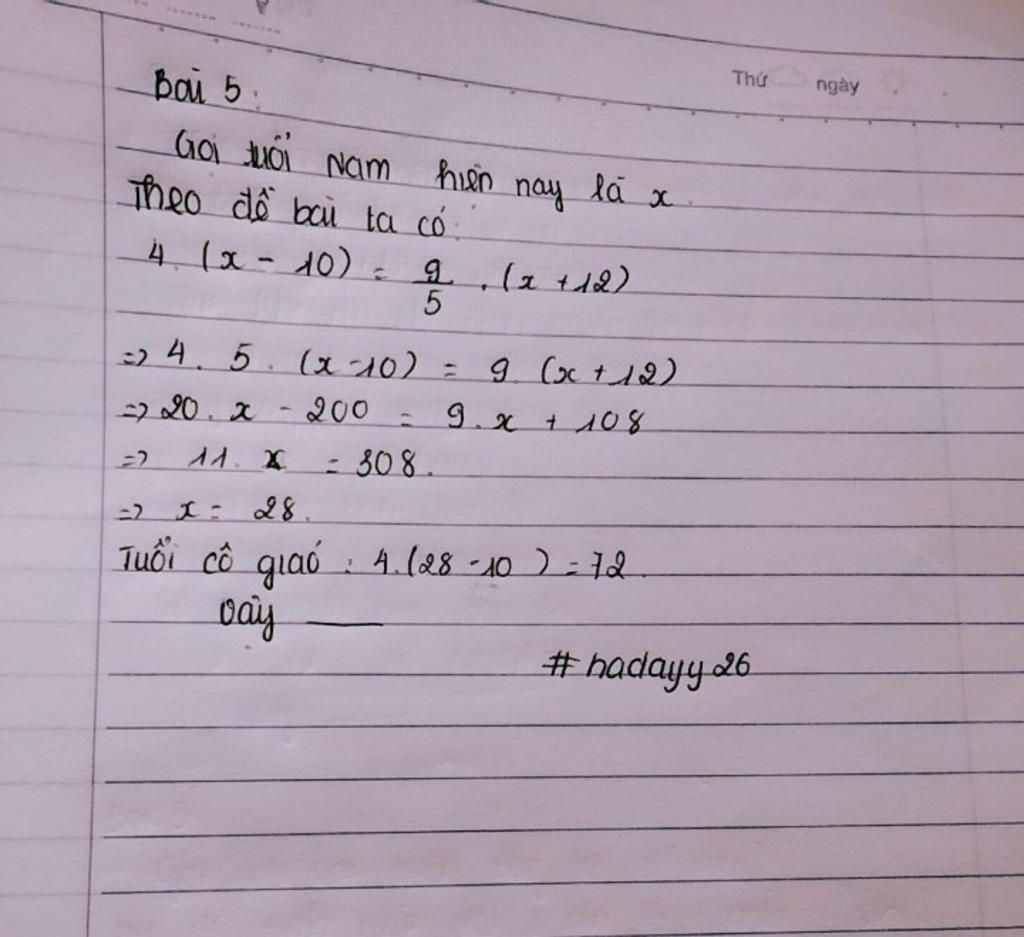 Thứ ngày
Bài 5:
Gọi tuổi Nam hiện nay là x
Theo đề bài ta có:
4. (x - 10) = 9/5 . (x + 12)
=> 4. 5. (x - 10) = 9. (x + 12)
=> 20. x - 200 = 9. x + 108
=> 11. x = 308.
=> x = 28.
Tuổi cô giáo : 4.(28 - 10) = 72.
Vậy ___
#hadayy26